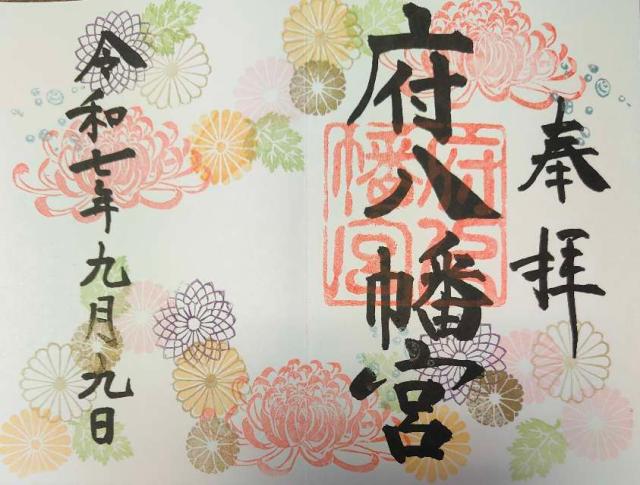 奉拝
府八幡宮
府八幡宮
令和七年九月九日